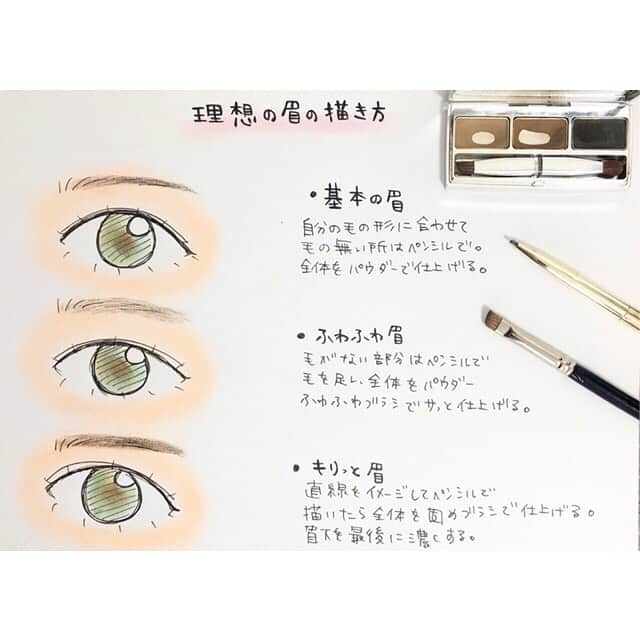 理想の眉の描き方
・基本の眉
自分の毛の形に合わせて
毛の無い所はペンシルで。
全体をパウダーで仕上げる。
・ふわふわ眉
毛がない部分はペンシルで
毛を足し、全体をパウダー
ふわふわブラシでサッと仕上げる。
・キリっと眉
直線をイメージしてペンシルで
描いたら全体を固めブラシで仕上げる。
眉下を最後に濃くする。